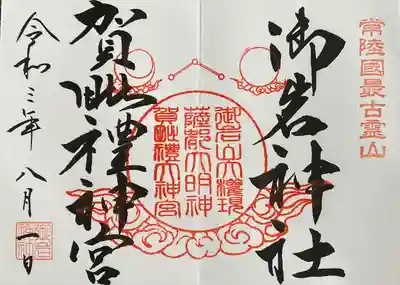 常陸國最古霊山
御岩神社
御岩山大権現
薩都大明神
賀毗禮大神宮
賀毗禮神宮
令和三年八月一日